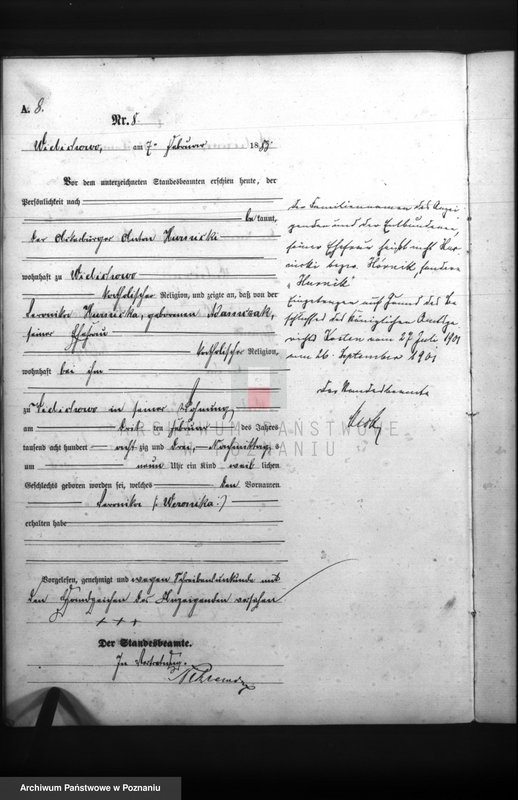 A. 8.
Nr. 8
Widichowo, am 7ten Februar 1883.
Vor dem unterzeichneten Standesbeamten erschien heute, der
Persönlichkeit nach
bekannt,
der Anton Hurnicki
wohnhaft zu Widichowo
katholischer Religion, und zeigte an, daß von der
Veronika Hurnicka, geborenen Wawrzak,
seiner Ehefrau
katholischer Religion,
wohnhaft bei ihm
zu Widichowo in seiner Wohnung
am drei ten Februar des Jahres
tausend acht hundert acht zig und drei, Nachmittags
um neun Uhr ein Kind weib lichen
Geschlechts geboren worden sei, welches den Vornamen
Veronika (: Weronika :)
erhalten habe
Vorgelesen, genehmigt und wegen Schreibensunkunde mit
den Handzeichen des Anzeigenden versehen
+++
Der Standesbeamte.
In Vertretung.
der Familiennamen des Anzei-
genden und der Entbundenen,
seiner Ehefrau heißt nicht Hur-
nicki bezw. Hórnik, sondern
„Hurnik“
Eingetragen auf Grund des Be-
schlusses des Königlichen Amtsge-
richts Kosten vom 27 Juli 1901
am 26. September 1901
Der Standesbeamte
ARCHIWUM PAŃSTWOWE
W POZNANIU
Archiwum Państwowe w Poznaniu